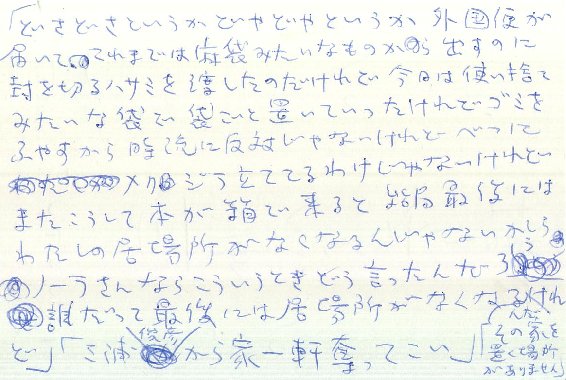 「どさどさというかどやどやというか 外国便が
届いて これまでは麻袋みたいなものから出すのに
封を切るハサミを渡したのだけれど 今日は使い捨て
みたいな袋で袋ごと置いていったけれどゴミを
ふやすから時流に反対じゃないけれど べつに
メクジラ立ててるわけじゃないけれど
またこうして本が箱で来ると 結局最後には
わたしの居場所がなくなるんじゃないかしら
ノーラさんならこういうときどう言ったんだろう
誰だって最後には居場所がなくなるんだけれ
ど」「三浦俊彦から家一軒奪ってこい」
「その家を
置く場所
がありません」